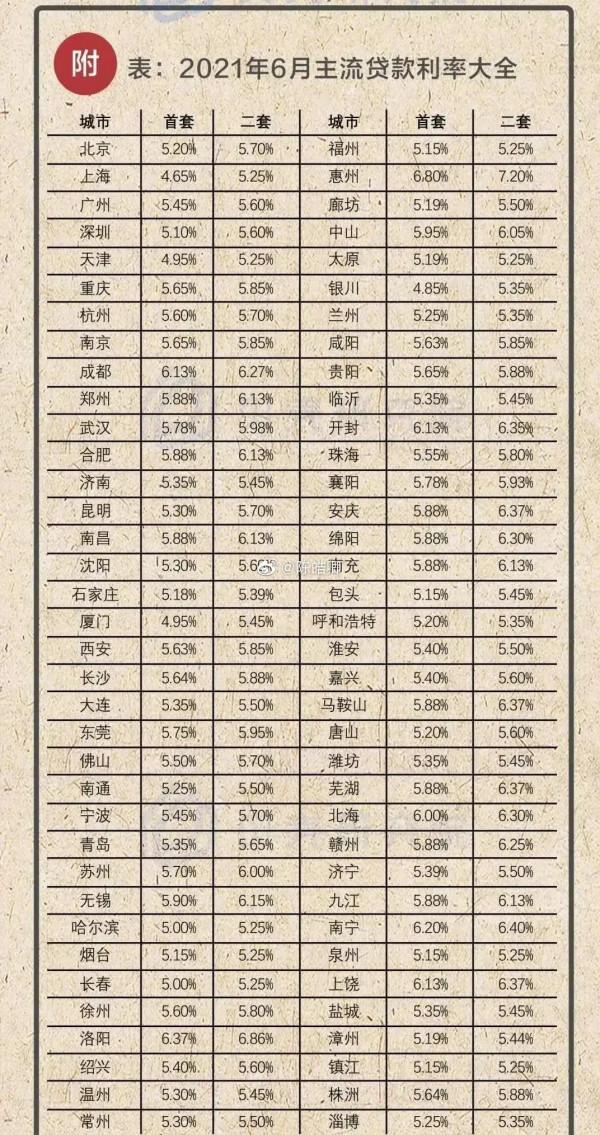 附
表：2021年6月主流贷款利率大全
城市 首套 二套 城市 首套 二套
北京 5.20% 5.70% 福州 5.15% 5.25%
上海 4.65% 5.25% 惠州 6.80% 7.20%
广州 5.45% 5.60% 廊坊 5.19% 5.50%
深圳 5.10% 5.60% 中山 5.95% 6.05%
天津 4.95% 5.25% 太原 5.19% 5.25%
重庆 5.65% 5.85% 银川 4.85% 5.35%
杭州 5.60% 5.70% 兰州 5.25% 5.35%
南京 5.65% 5.85% 咸阳 5.63% 5.85%
成都 6.13% 6.27% 贵阳 5.65% 5.88%
郑州 5.88% 6.13% 临沂 5.35% 5.45%
武汉 5.78% 5.98% 开封 6.13% 6.35%
合肥 5.88% 6.13% 珠海 5.55% 5.80%
济南 5.35% 5.45% 襄阳 5.78% 5.93%
昆明 5.30% 5.70% 安庆 5.88% 6.37%
南昌 5.88% 6.13% 绵阳 5.88% 6.30%
沈阳 5.30% 充 5.88% 6.13%
石家庄 5.18% 5.39% 包头 5.15% 5.45%
厦门 4.95% 5.45% 呼和浩特 5.20% 5.35%
西安 5.63% 5.85% 淮安 5.40% 5.50%
长沙 5.64% 5.88% 嘉兴 5.40% 5.60%
大连 5.35% 5.50% 马鞍山 5.88% 6.37%
东莞 5.75% 5.95% 唐山 5.20% 5.60%
佛山 5.50% 5.70% 潍坊 5.35% 5.45%
南通 5.25% 5.50% 芜湖 5.88% 6.37%
宁波 5.45% 5.70% 北海 6.00% 6.30%
青岛 5.35% 5.65% 赣州 5.88% 6.25%
苏州 5.70% 6.00% 济宁 5.39% 5.50%
无锡 5.90% 6.15% 九江 5.88% 6.13%
哈尔滨 5.00% 5.25% 南宁 6.20% 6.40%
烟台 5.15% 5.25% 泉州 5.15% 5.25%
长春 5.00% 5.25% 上饶 6.13% 6.37%
徐州 5.60% 5.80% 盐城 5.35% 5.45%
洛阳 6.37% 6.86% 漳州 5.19% 5.44%
绍兴 5.40% 5.60% 镇江 5.15% 5.25%
温州 5.30% 5.45% 株洲 5.64% 5.88%
常州 5.30% 5.50% 淄博 5.25% 5.35%